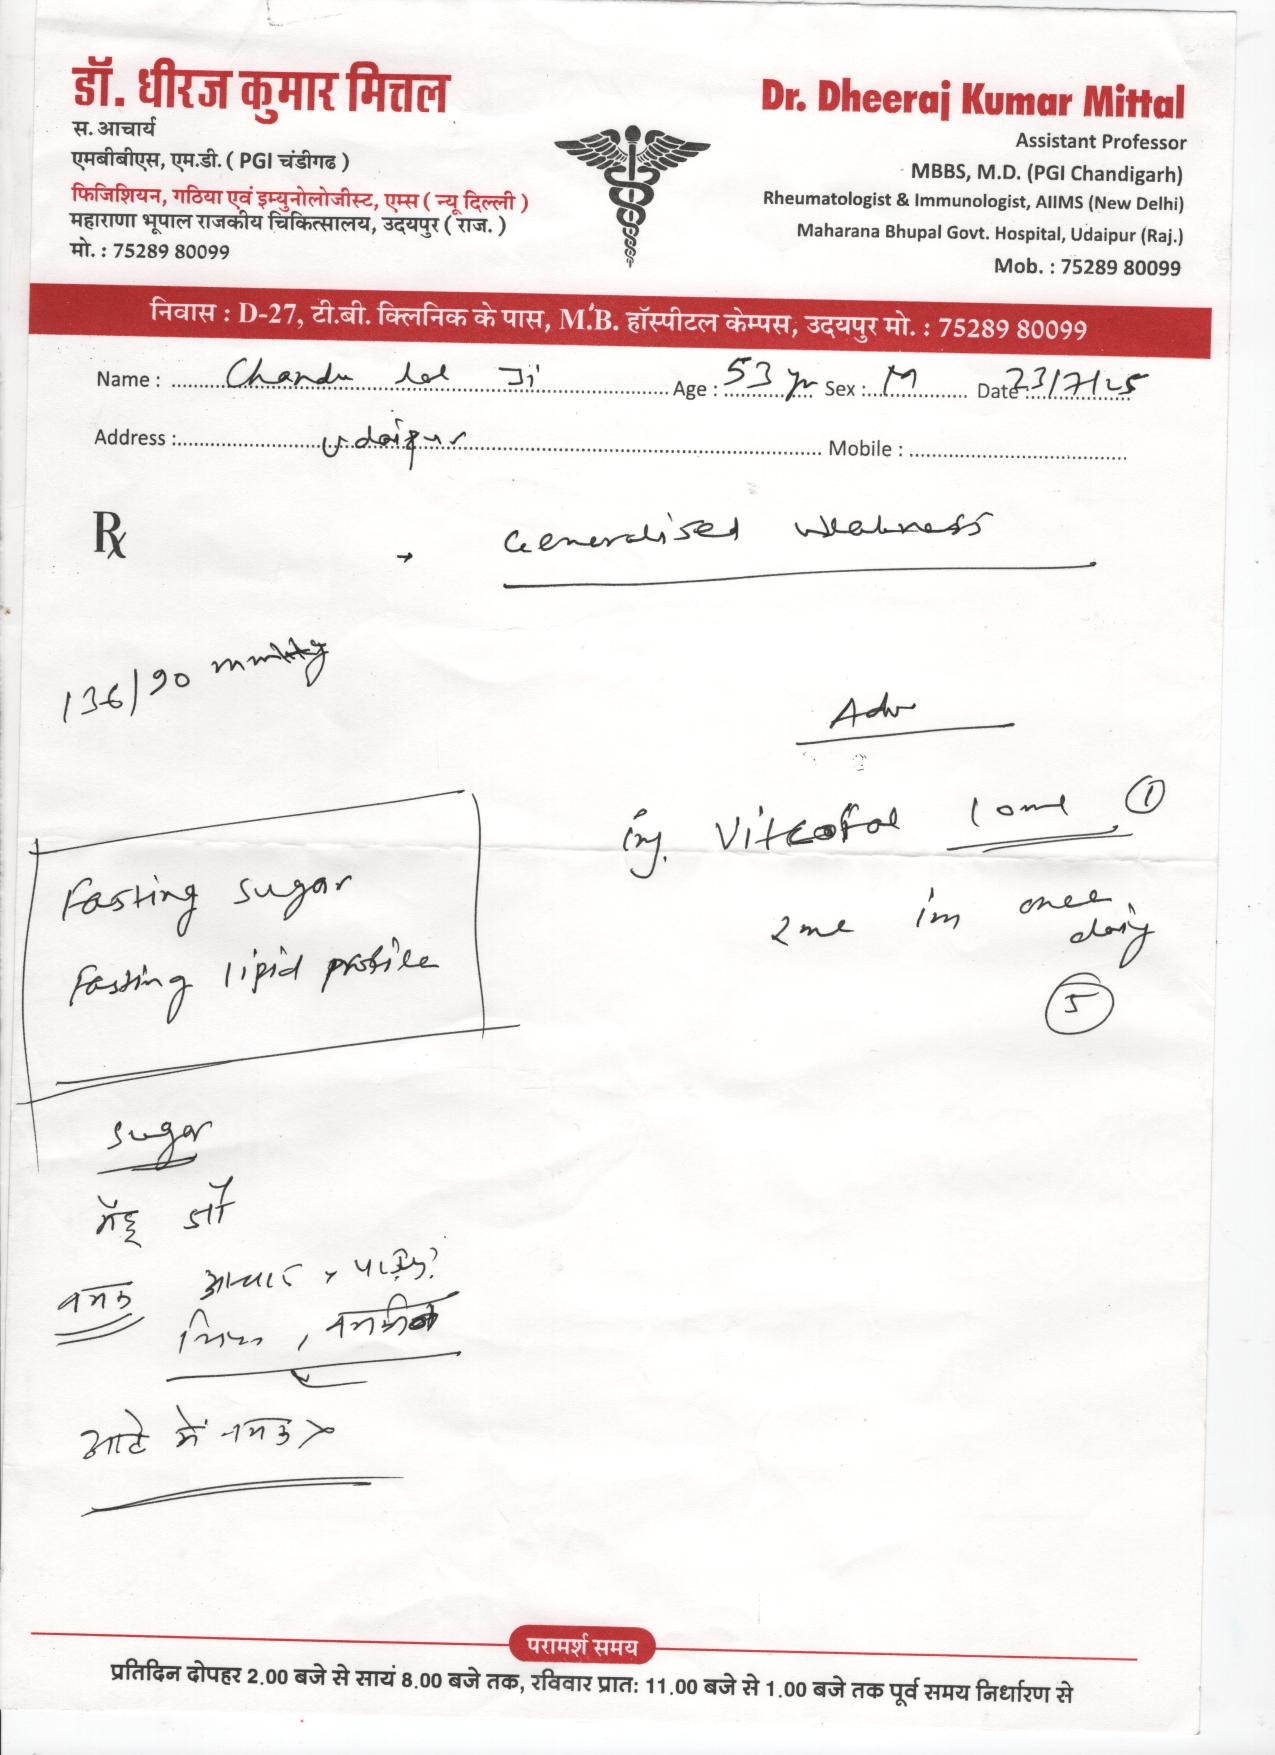 डॉ. धीरज कुमार मित्तल
स. आचार्य
एमबीबीएस, एम.डी. ( PGI चंडीगढ )
फिजिशियन, गठिया एवं इम्युनोलोजीस्ट, एम्स ( न्यू दिल्ली )
महाराणा भूपाल राजकीय चिकित्सालय, उदयपुर ( राज. )
मो. : 75289 80099
Dr. Dheeraj Kumar Mittal
Assistant Professor
MBBS, M.D. (PGI Chandigarh)
Rheumatologist & Immunologist, AIIMS (New Delhi)
Maharana Bhupal Govt. Hospital, Udaipur (Raj.)
Mob. : 75289 80099
निवास : D-27, टी.बी. क्लिनिक के पास, M.B. हॉस्पीटल केम्पस, उदयपुर मो. : 75289 80099
Name : Chandu lal Ji Age : 53 yr Sex : M Date : 23/7/25
Address : Udaipur Mobile :
Rx
→ Generalised weakness
136/90 mmHg
Adv
inj. Vitcofol 10ml ①
2ml im once
daily
⑤
Fasting sugar
Fasting lipid profile
sugar
जौ
नमक आचार
नमकीन
आटे में नमक ×
परामर्श समय
प्रतिदिन दोपहर 2.00 बजे से सायं 8.00 बजे तक, रविवार प्रातः 11.00 बजे से 1.00 बजे तक पूर्व समय निर्धारण से